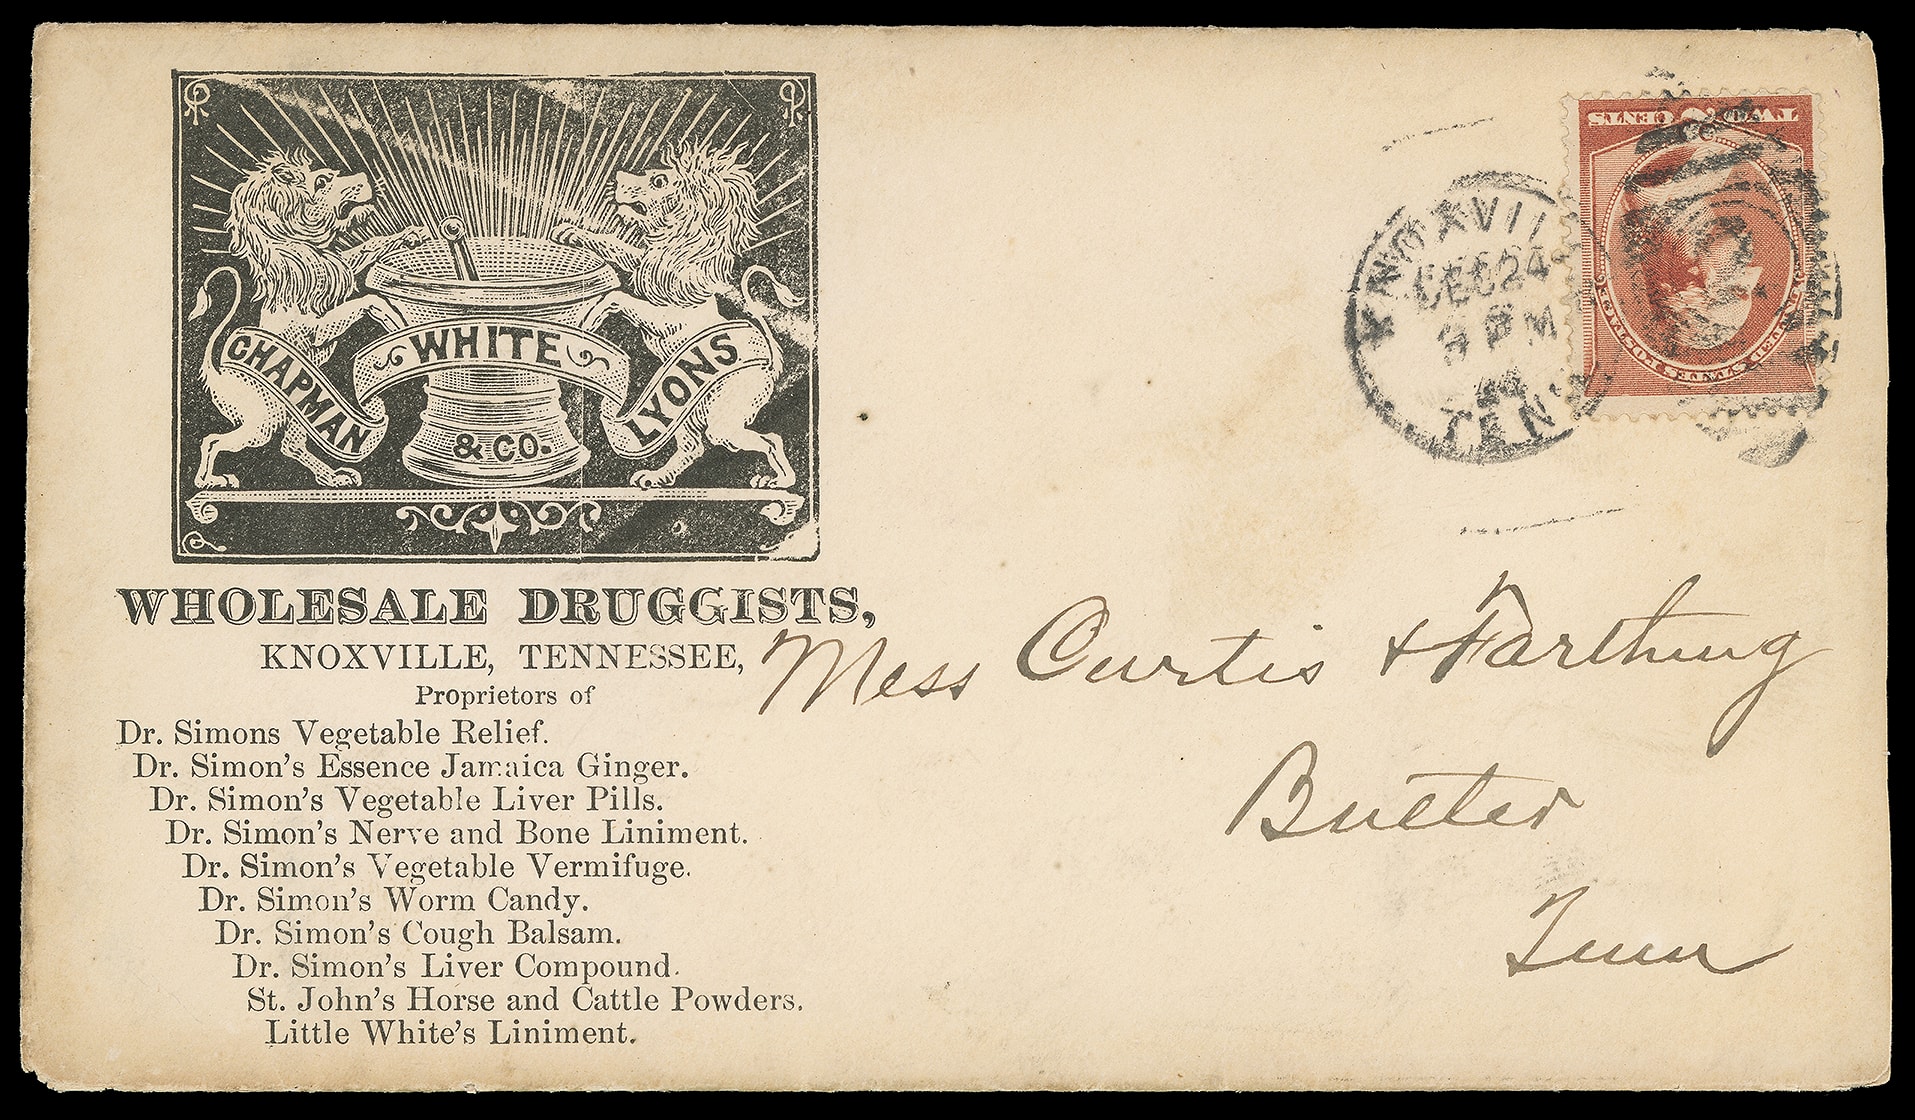 CHAPMAN WHITE LYONS
& CO.
WHOLESALE DRUGGISTS,
KNOXVILLE, TENNESSEE,
Proprietors of
Dr. Simons Vegetable Relief.
Dr. Simon's Essence Jamaica Ginger.
Dr. Simon's Vegetable Liver Pills.
Dr. Simon's Nerve and Bone Liniment.
Dr. Simon's Vegetable Vermifuge.
Dr. Simon's Worm Candy.
Dr. Simon's Cough Balsam.
Dr. Simon's Liver Compound.
St. John's Horse and Cattle Powders.
Little White's Liniment.
KNOXVILL
DEC 24
PM
84
TENN.
TWO 2 CENTS
UNITED STATES POSTAGE
Mess Curtis & Farthing
Butler
Tenn